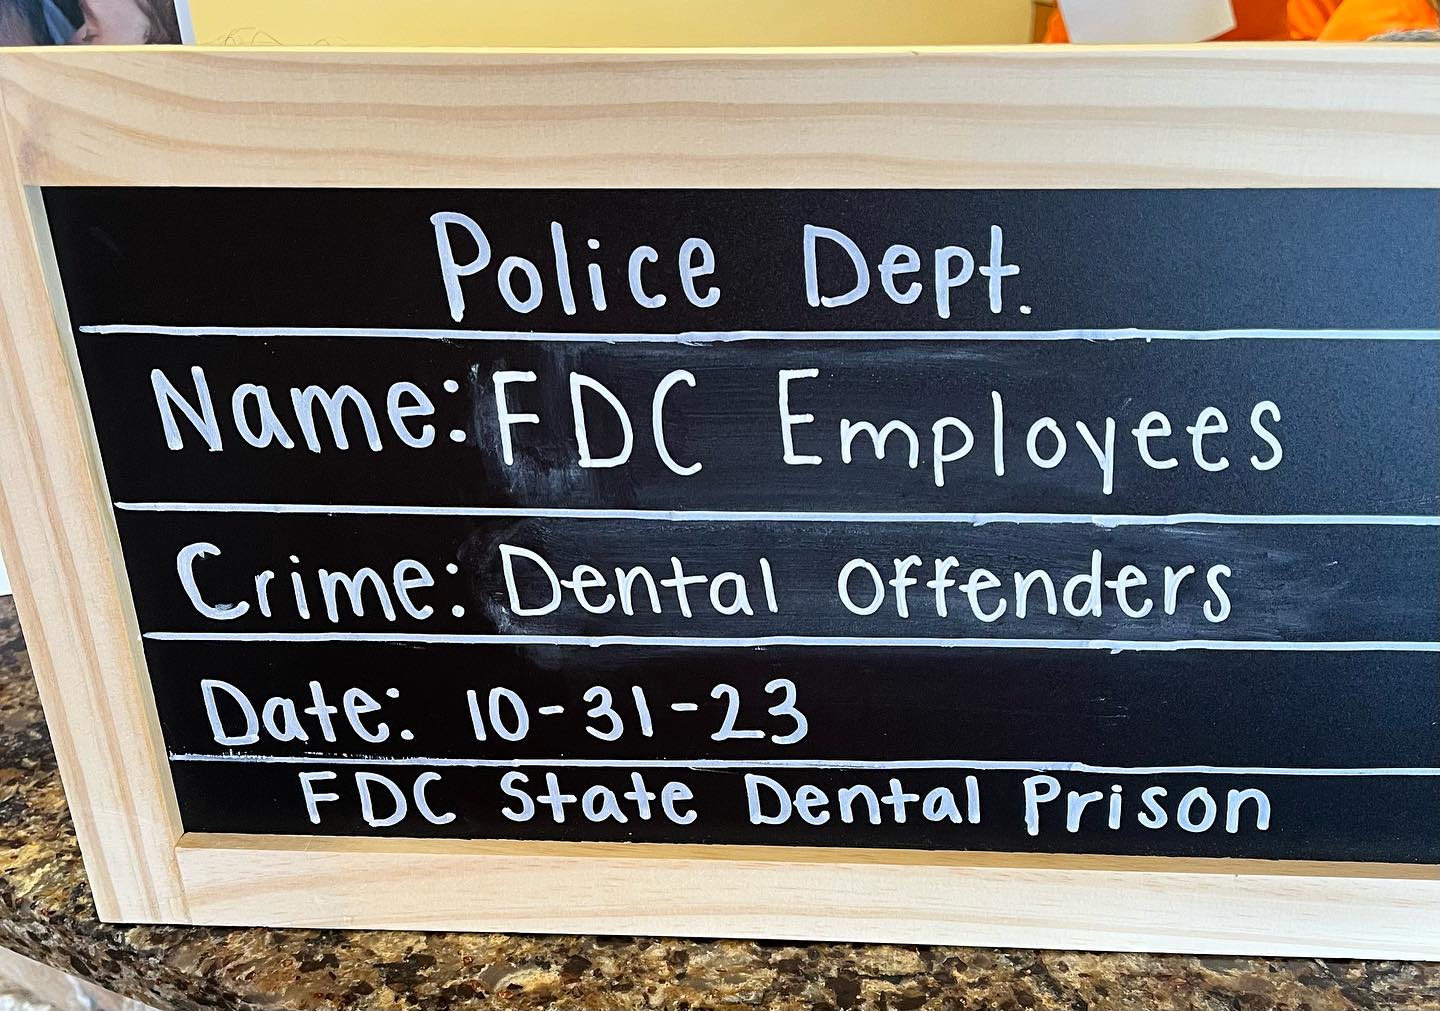 Police Dept.
Name: FDC Employees
Crime: Dental Offenders
Date: 10-31-23
FDC State Dental Prison